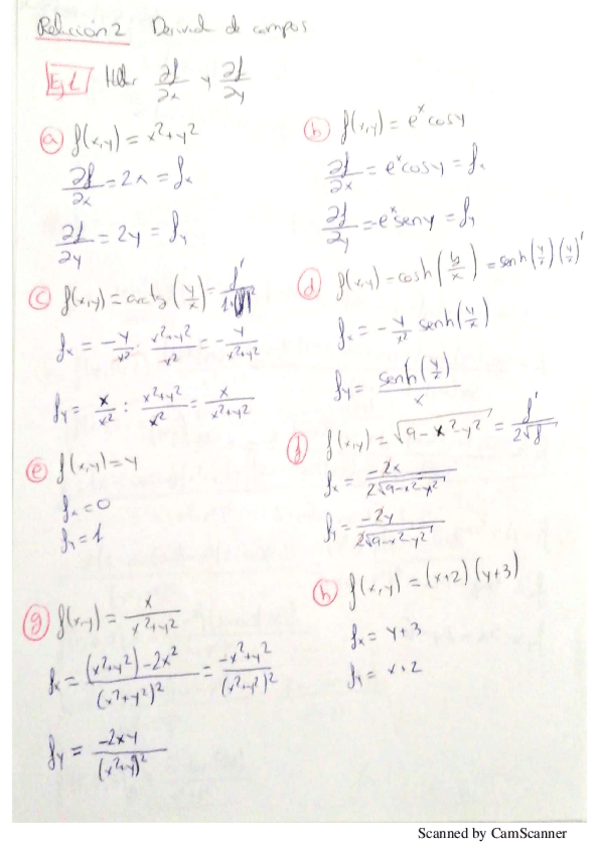 Relación 2 Derivada de campos
Ej 1 Hallar ∂f/∂x y ∂f/∂y
(a) f(x,y) = x²+y²
∂f/∂x = 2x = fx
∂f/∂y = 2y = fy
(b) f(x,y) = e^x cosy
∂f/∂x = e^x cosy = fx
∂f/∂y = -e^x seny = fy
(c) f(x,y) = arctg (y/x) = f'
fx = -y/x² : (x²+y²)/x² = -y/(x²+y²)
fy = x/x² : (x²+y²)/x² = x/(x²+y²)
(d) f(x,y) = cosh (y/x) = senh (y/x) (y/x)'
fx = -y/x² senh (y/x)
fy = senh (y/x)/x
(e) f(x,y) = y
fx = 0
fy = 1
(f) f(x,y) = √(9-x²-y²) = f'/(2√f)
fx = -2x/(2√(9-x²-y²))
fy = -2y/(2√(9-x²-y²))
(g) f(x,y) = x/(x²+y²)
fx = ((x²+y²)-2x²)/(x²+y²)² = (-x²+y²)/(x²+y²)²
fy = -2xy/(x²+y)²
(h) f(x,y) = (x+2)(y+3)
fx = y+3
fy = x+2
Scanned by CamScanner